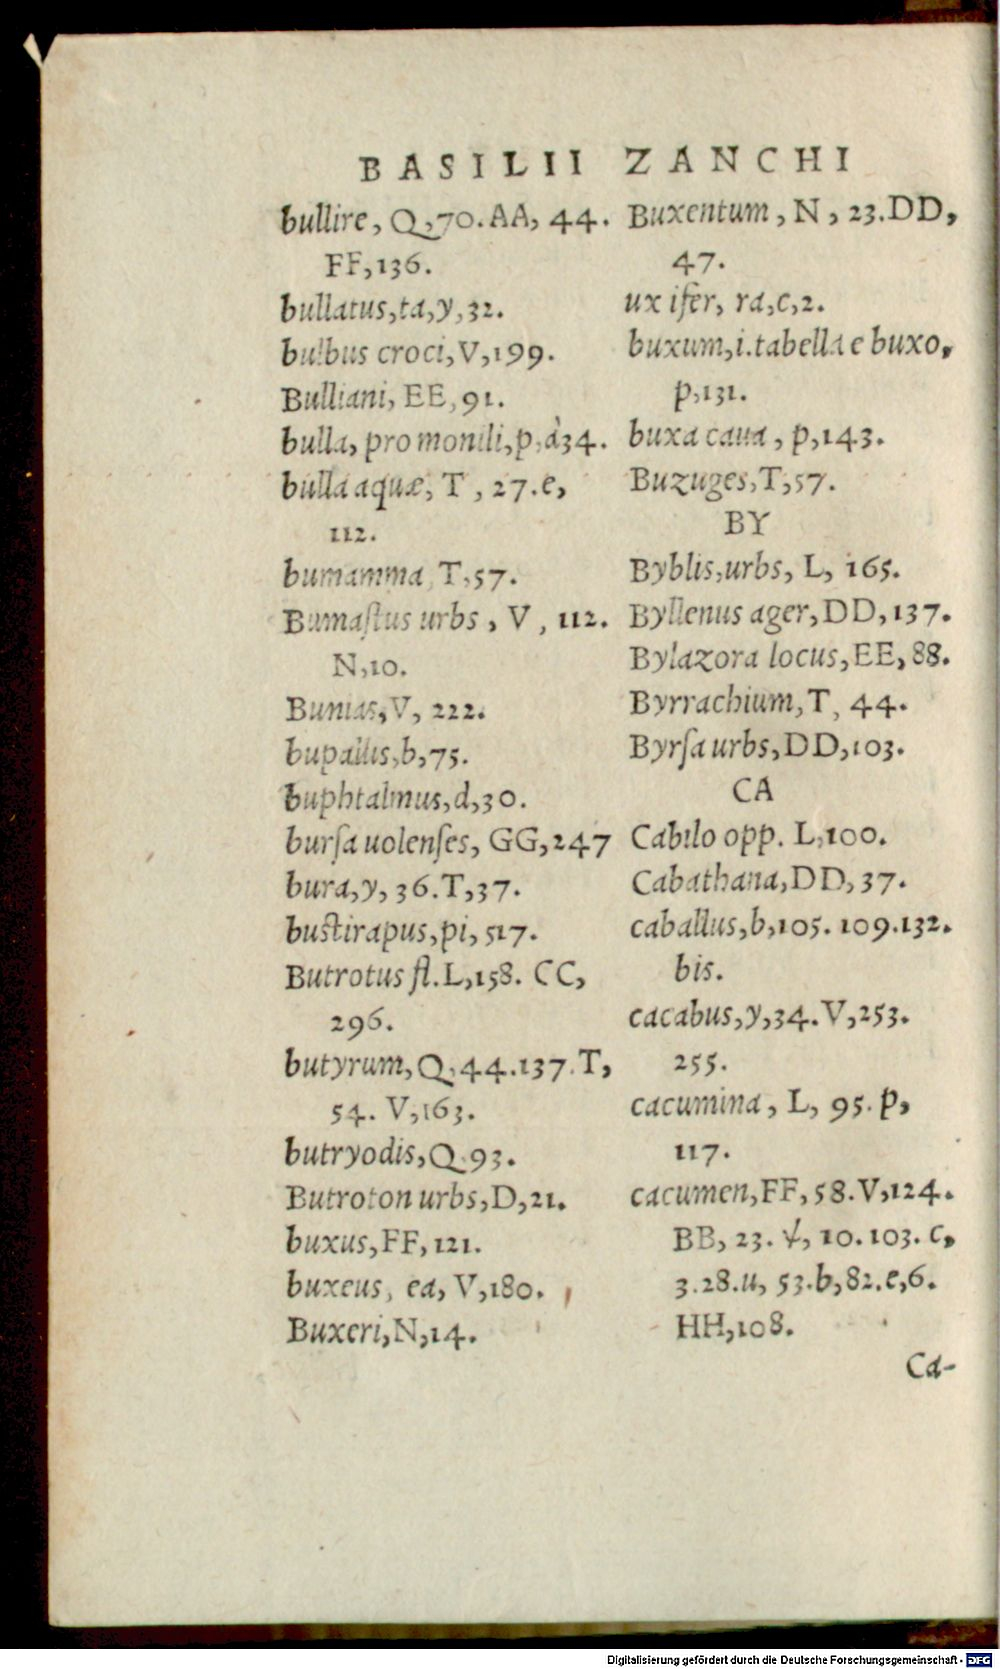 BASILII ZANCHI
bullire, Q,70. AA, 44.
FF,136.
bullatus,ta,y,32.
bulbus croci,V,199.
Bulliani, EE,91.
bulla, pro monili,p,à34.
bulla aquæ, T, 27.e,
112.
bumamma, T,57.
Bumaſtus urbs, V, 112.
N,10.
Bunias,V, 222.
bupallis,b,75.
buphtalmus,d,30.
burſa uolenſes, GG,247
bura,y, 36.T,37.
bustirapus,pi, 517.
Butrotus fl.L,158. CC,
296.
butyrum, Q,44.137.T,
54. V,163.
butryodis,Q.93.
Butroton urbs,D,21.
buxus,FF,121.
buxeus, ea, V,180.
Buxeri,N,14.
Buxentum, N, 23.DD,
47.
ux ifer, ra,c,2.
buxum,i.tabella e buxo,
p,131.
buxa caua, p,143.
Buzuges,T,57.
BY
Byblis,urbs, L, 165.
Byllenus ager,DD,137.
Bylazora locus,EE,88.
Byrrachium,T, 44.
Byrſa urbs,DD,103.
CA
Cabilo opp. L,100.
Cabathana,DD,37.
caballus,b,105. 109.132.
bis.
cacabus,y,34.V,253.
255.
cacumina, L, 95. p,
117.
cacumen,FF,58.V,124.
BB, 23. ꝟ, 10.103. c,
3.28.u, 53.b,82.e,6.
HH,108.
Ca-
Digitalisierung gefördert durch die Deutsche Forschungsgemeinschaft - DFG